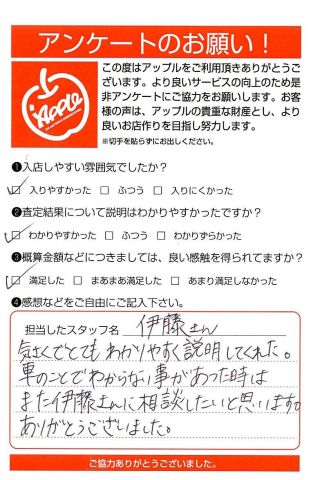 アンケートのお願い！
Apple
この度はアップルをご利用頂きありがとうございます。より良いサービスの向上のため是非アンケートにご協力をお願いします。お客様の声は、アップルの貴重な財産とし、より良いお店作りを目指し努力します。
※切手を貼らずにお出しください。
❶入店しやすい雰囲気でしたか？
☑ 入りやすかった □ ふつう □ 入りにくかった
❷査定結果について説明はわかりやすかったですか？
☑ わかりやすかった □ ふつう □ わかりずらかった
❸概算金額などにつきましては、良い感触を得られてますか？
☑ 満足した □ まあまあ満足した □ あまり満足しなかった
❹感想などをご自由にご記入下さい。
担当したスタッフ名 伊藤さん
気さくでとてもわかりやすく説明してくれた。
車のことでわからない事があった時は
また伊藤さんに相談したいと思います。
ありがとうございました。
ご協力ありがとうございました。